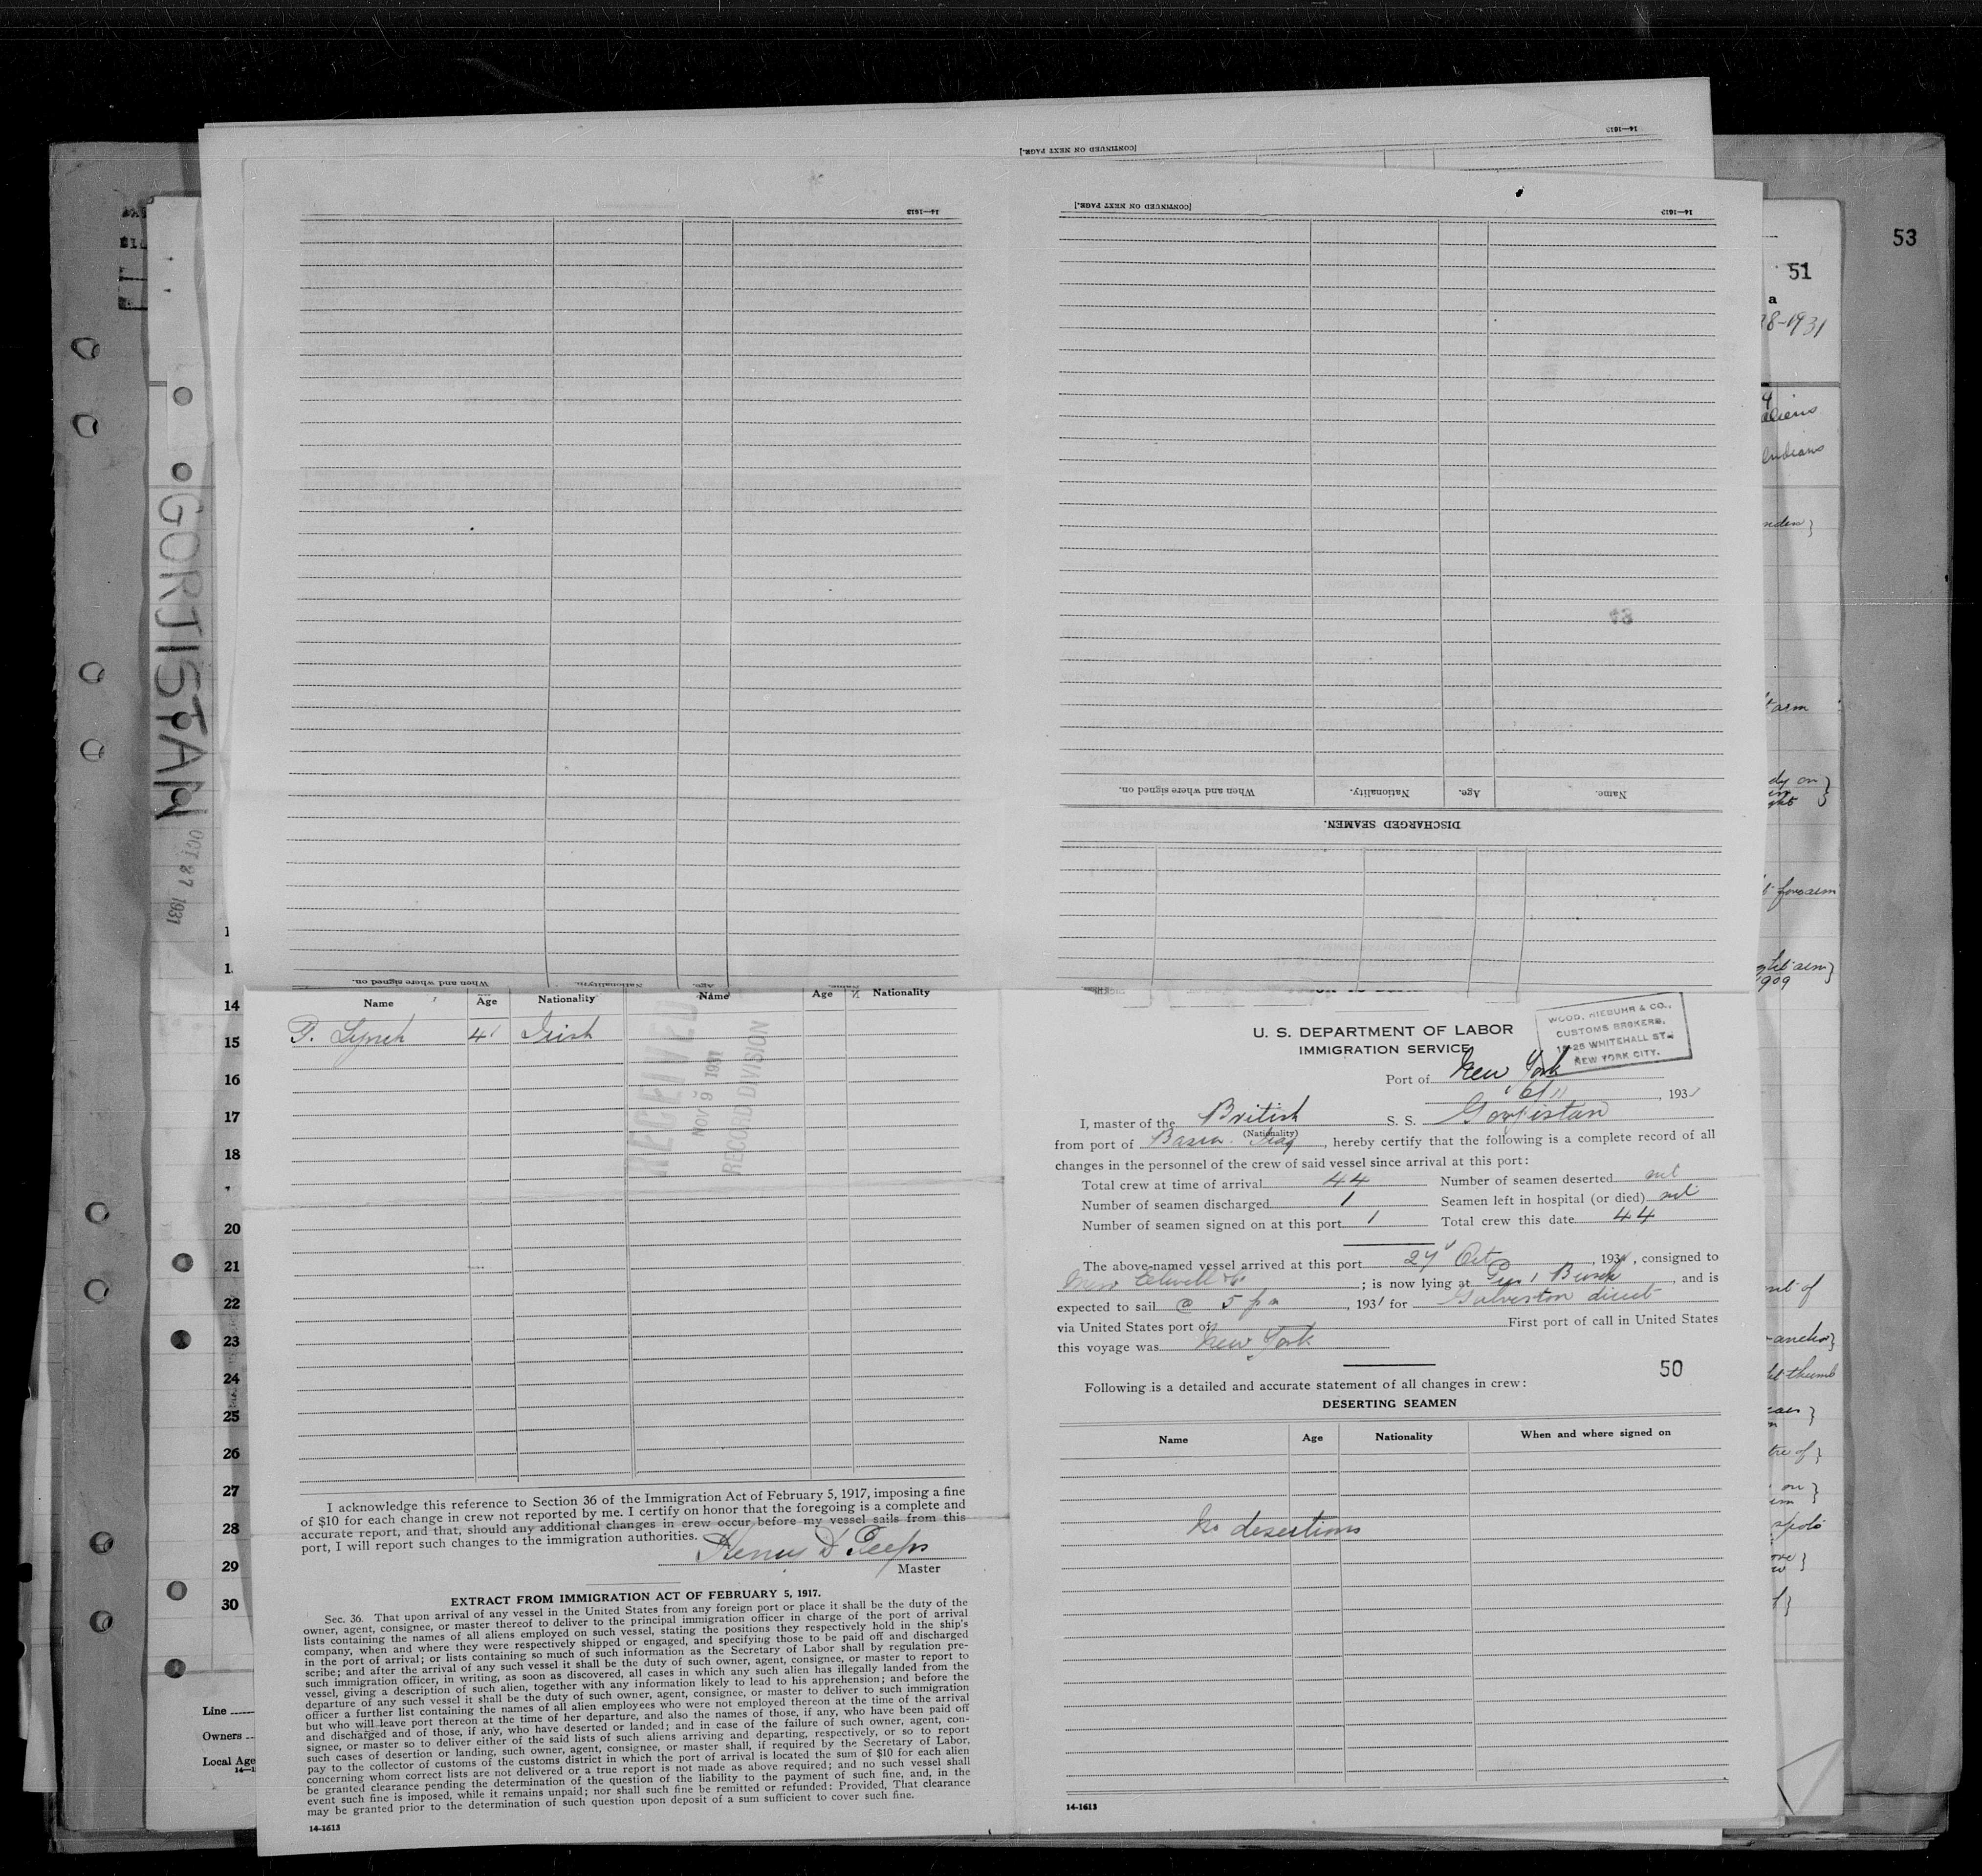 [CONTINUED ON NEXT PAGE.]
14—1613
53
51
a
8-1931
aliens
GORJISTAN
OCT 27 1931
14—1613
[CONTINUED ON NEXT PAGE.]
14—1613
arm
When and where signed on.
Nationality.
Age.
Name.
DISCHARGED SEAMEN.
forearm
arm}
1909
When and where signed on.
Nationality.
Age.
Name.
Name
Age
Nationality
Name
Age
Nationality
P. Lynch
Irish
RECEIVED
NOV 9 1931
RECORD DIVISION
14
15
16
17
18
20
21
22
23
24
25
26
27
28
29
30
I acknowledge this reference to Section 36 of the Immigration Act of February 5, 1917, imposing a fine
of $10 for each change in crew not reported by me. I certify on honor that the foregoing is a complete and
accurate report, and that, should any additional changes in crew occur before my vessel sails from this
port, I will report such changes to the immigration authorities.
Master
EXTRACT FROM IMMIGRATION ACT OF FEBRUARY 5, 1917.
Sec. 36. That upon arrival of any vessel in the United States from any foreign port or place it shall be the duty of the
owner, agent, consignee, or master thereof to deliver to the principal immigration officer in charge of the port of arrival
lists containing the names of all aliens employed on such vessel, stating the positions they respectively hold in the ship's
company, when and where they were respectively shipped or engaged, and specifying those to be paid off and discharged
in the port of arrival; or lists containing so much of such information as the Secretary of Labor shall by regulation pre-
scribe; and after the arrival of any such vessel it shall be the duty of such owner, agent, consignee, or master to report to
such immigration officer, in writing, as soon as discovered, all cases in which any such alien has illegally landed from the
vessel, giving a description of such alien, together with any information likely to lead to his apprehension; and before the
departure of any such vessel it shall be the duty of such owner, agent, consignee, or master to deliver to such immigration
officer a further list containing the names of all alien employees who were not employed thereon at the time of the arrival
but who will leave port thereon at the time of her departure, and also the names of those, if any, who have been paid off
and discharged and of those, if any, who have deserted or landed; and in case of the failure of such owner, agent, con-
signee, or master so to deliver either of the said lists of such aliens arriving and departing, respectively, or so to report
such cases of desertion or landing, such owner, agent, consignee, or master shall, if required by the Secretary of Labor,
pay to the collector of customs of the customs district in which the port of arrival is located the sum of $10 for each alien
concerning whom correct lists are not delivered or a true report is not made as above required; and no such vessel shall
be granted clearance pending the determination of the question of the liability to the payment of such fine, and, in the
event such fine is imposed, while it remains unpaid; nor shall such fine be remitted or refunded: Provided, That clearance
may be granted prior to the determination of such question upon deposit of a sum sufficient to cover such fine.
14-1613
Line
Owners
Local Age
U. S. DEPARTMENT OF LABOR
IMMIGRATION SERVICE
WOOD, NIEBUHR & CO.,
CUSTOMS BROKERS,
WHITEHALL ST.
NEW YORK CITY.
Port of New York
6/11, 1931
I, master of the British S. S. Gorjistan
(Nationality)
from port of Basra Iraq, hereby certify that the following is a complete record of all
changes in the personnel of the crew of said vessel since arrival at this port:
Total crew at time of arrival 44 Number of seamen deserted nil
Number of seamen discharged 1 Seamen left in hospital (or died) nil
Number of seamen signed on at this port 1 Total crew this date 44
The above-named vessel arrived at this port 27 Oct, 1931, consigned to
; is now lying at Pier 1 Bush, and is
expected to sail @ 5 pm, 1931 for Galveston direct
via United States port of First port of call in United States
this voyage was New York
50
Following is a detailed and accurate statement of all changes in crew:
DESERTING SEAMEN
Name
Age
Nationality
When and where signed on
No desertions
14-1613
anchor}
thumb